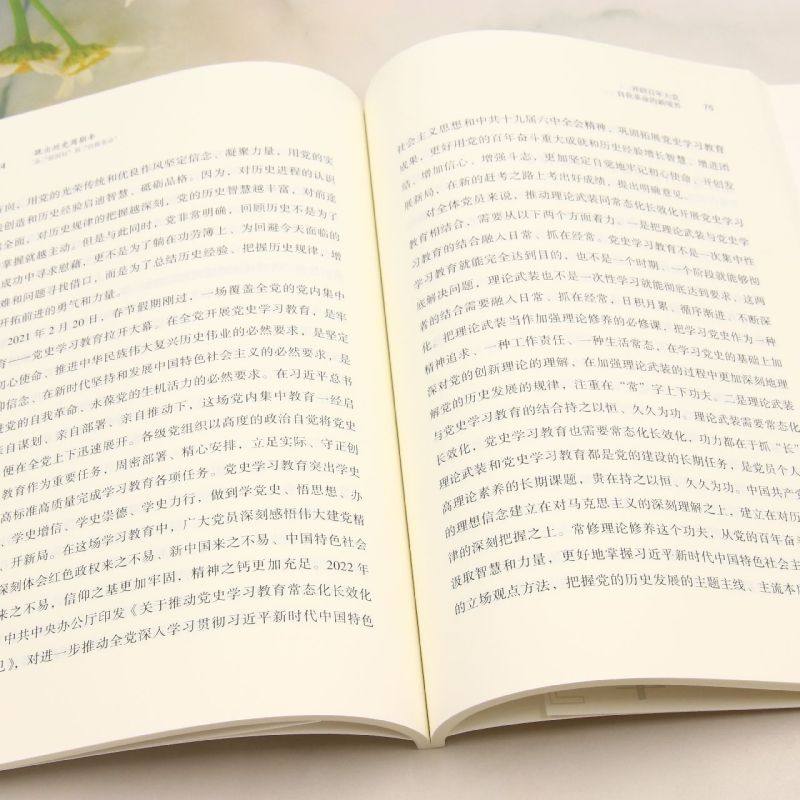 跳出历史周期率
方向，用党的光荣传统和优良作风坚定信念、凝聚力量，用党的实
创造和历史经验启迪智慧、砥砺品格。因为，对历史进程的认识
全面，对历史规律的把握越深刻，党的历史智慧越丰富，对前途
掌握就越主动。但是与此同时，党非常明确，回顾历史不是为了
成功中寻求慰藉，更不是为了躺在功劳簿上、为回避今天面临的
难和问题寻找借口，而是为了总结历史经验、把握历史规律，增
开拓前进的勇气和力量。
2021年2月20日，春节假期刚过，一场覆盖全党的党内集中
育——党史学习教育拉开大幕。在全党开展党史学习教育，是牢
初心使命、推进中华民族伟大复兴历史伟业的必然要求，是坚定
仰信念、在新时代坚持和发展中国特色社会主义的必然要求，是
进党的自我革命、永葆党的生机活力的必然要求。在习近平总书
亲自谋划、亲自部署、亲自推动下，这场党内集中教育一经启
便在全党上下迅速展开。各级党组织以高度的政治自觉将党史
教育作为重要任务，周密部署、精心安排，立足实际、守正创
高标准高质量完成学习教育各项任务。党史学习教育突出学史
、学史增信、学史崇德、学史力行，做到学党史、悟思想、办
、开新局。在这场学习教育中，广大党员深刻感悟伟大建党精
深刻体会红色政权来之不易、新中国来之不易、中国特色社会
来之不易，信仰之基更加牢固，精神之钙更加充足。2022年
中共中央办公厅印发《关于推动党史学习教育常态化长效化
见》，对进一步推动全党深入学习贯彻习近平新时代中国特色
开辟百年大党
自我革命的新境界
75
社会主义思想和中共十九届六中全会精神，巩固拓展党史学习教育
成果，更好用党的百年奋斗重大成就和历史经验增长智慧、增进团
结、增加信心、增强斗志，更加坚定自觉地牢记初心使命、开创发
展新局，在新的赶考之路上考出好成绩，提出明确意见。
对全体党员来说，推动理论武装同常态化长效化开展党史学习
教育相结合，需要从以下两个方面着力。一是把理论武装与党史学
习教育的结合融入日常、抓在经常。党史学习教育不是一次集中性
学习教育就能完全达到目的，也不是一个时期、一个阶段就能够彻
底解决问题，理论武装也不是一次性学习就能彻底达到要求，这两
者的结合需要融入日常、抓在经常，日积月累、循序渐进、不断深
化。把理论武装当作加强理论修养的必修课，把学习党史作为一种
精神追求、一种工作责任、一种生活常态，在学习党史的基础上加
深对党的创新理论的理解，在加强理论武装的过程中更加深刻地理
解党的历史发展的规律，注重在“常”字上下功夫。二是理论武装
与党史学习教育的结合持之以恒、久久为功。理论武装需要常态化
长效化，党史学习教育也需要常态化长效化，功力都在于抓“长”
理论武装和党史学习教育都是党的建设的长期任务，是党员个人
高理论素养的长期课题，贵在持之以恒、久久为功。中国共产党
的理想信念建立在对马克思主义的深刻理解之上，建立在对历
律的深刻把握之上。常修理论修养这个功夫，从党的百年奋斗
汲取智慧和力量，更好地掌握习近平新时代中国特色社会主
的立场观点方法，把握党的历史发展的主题主线、主流本